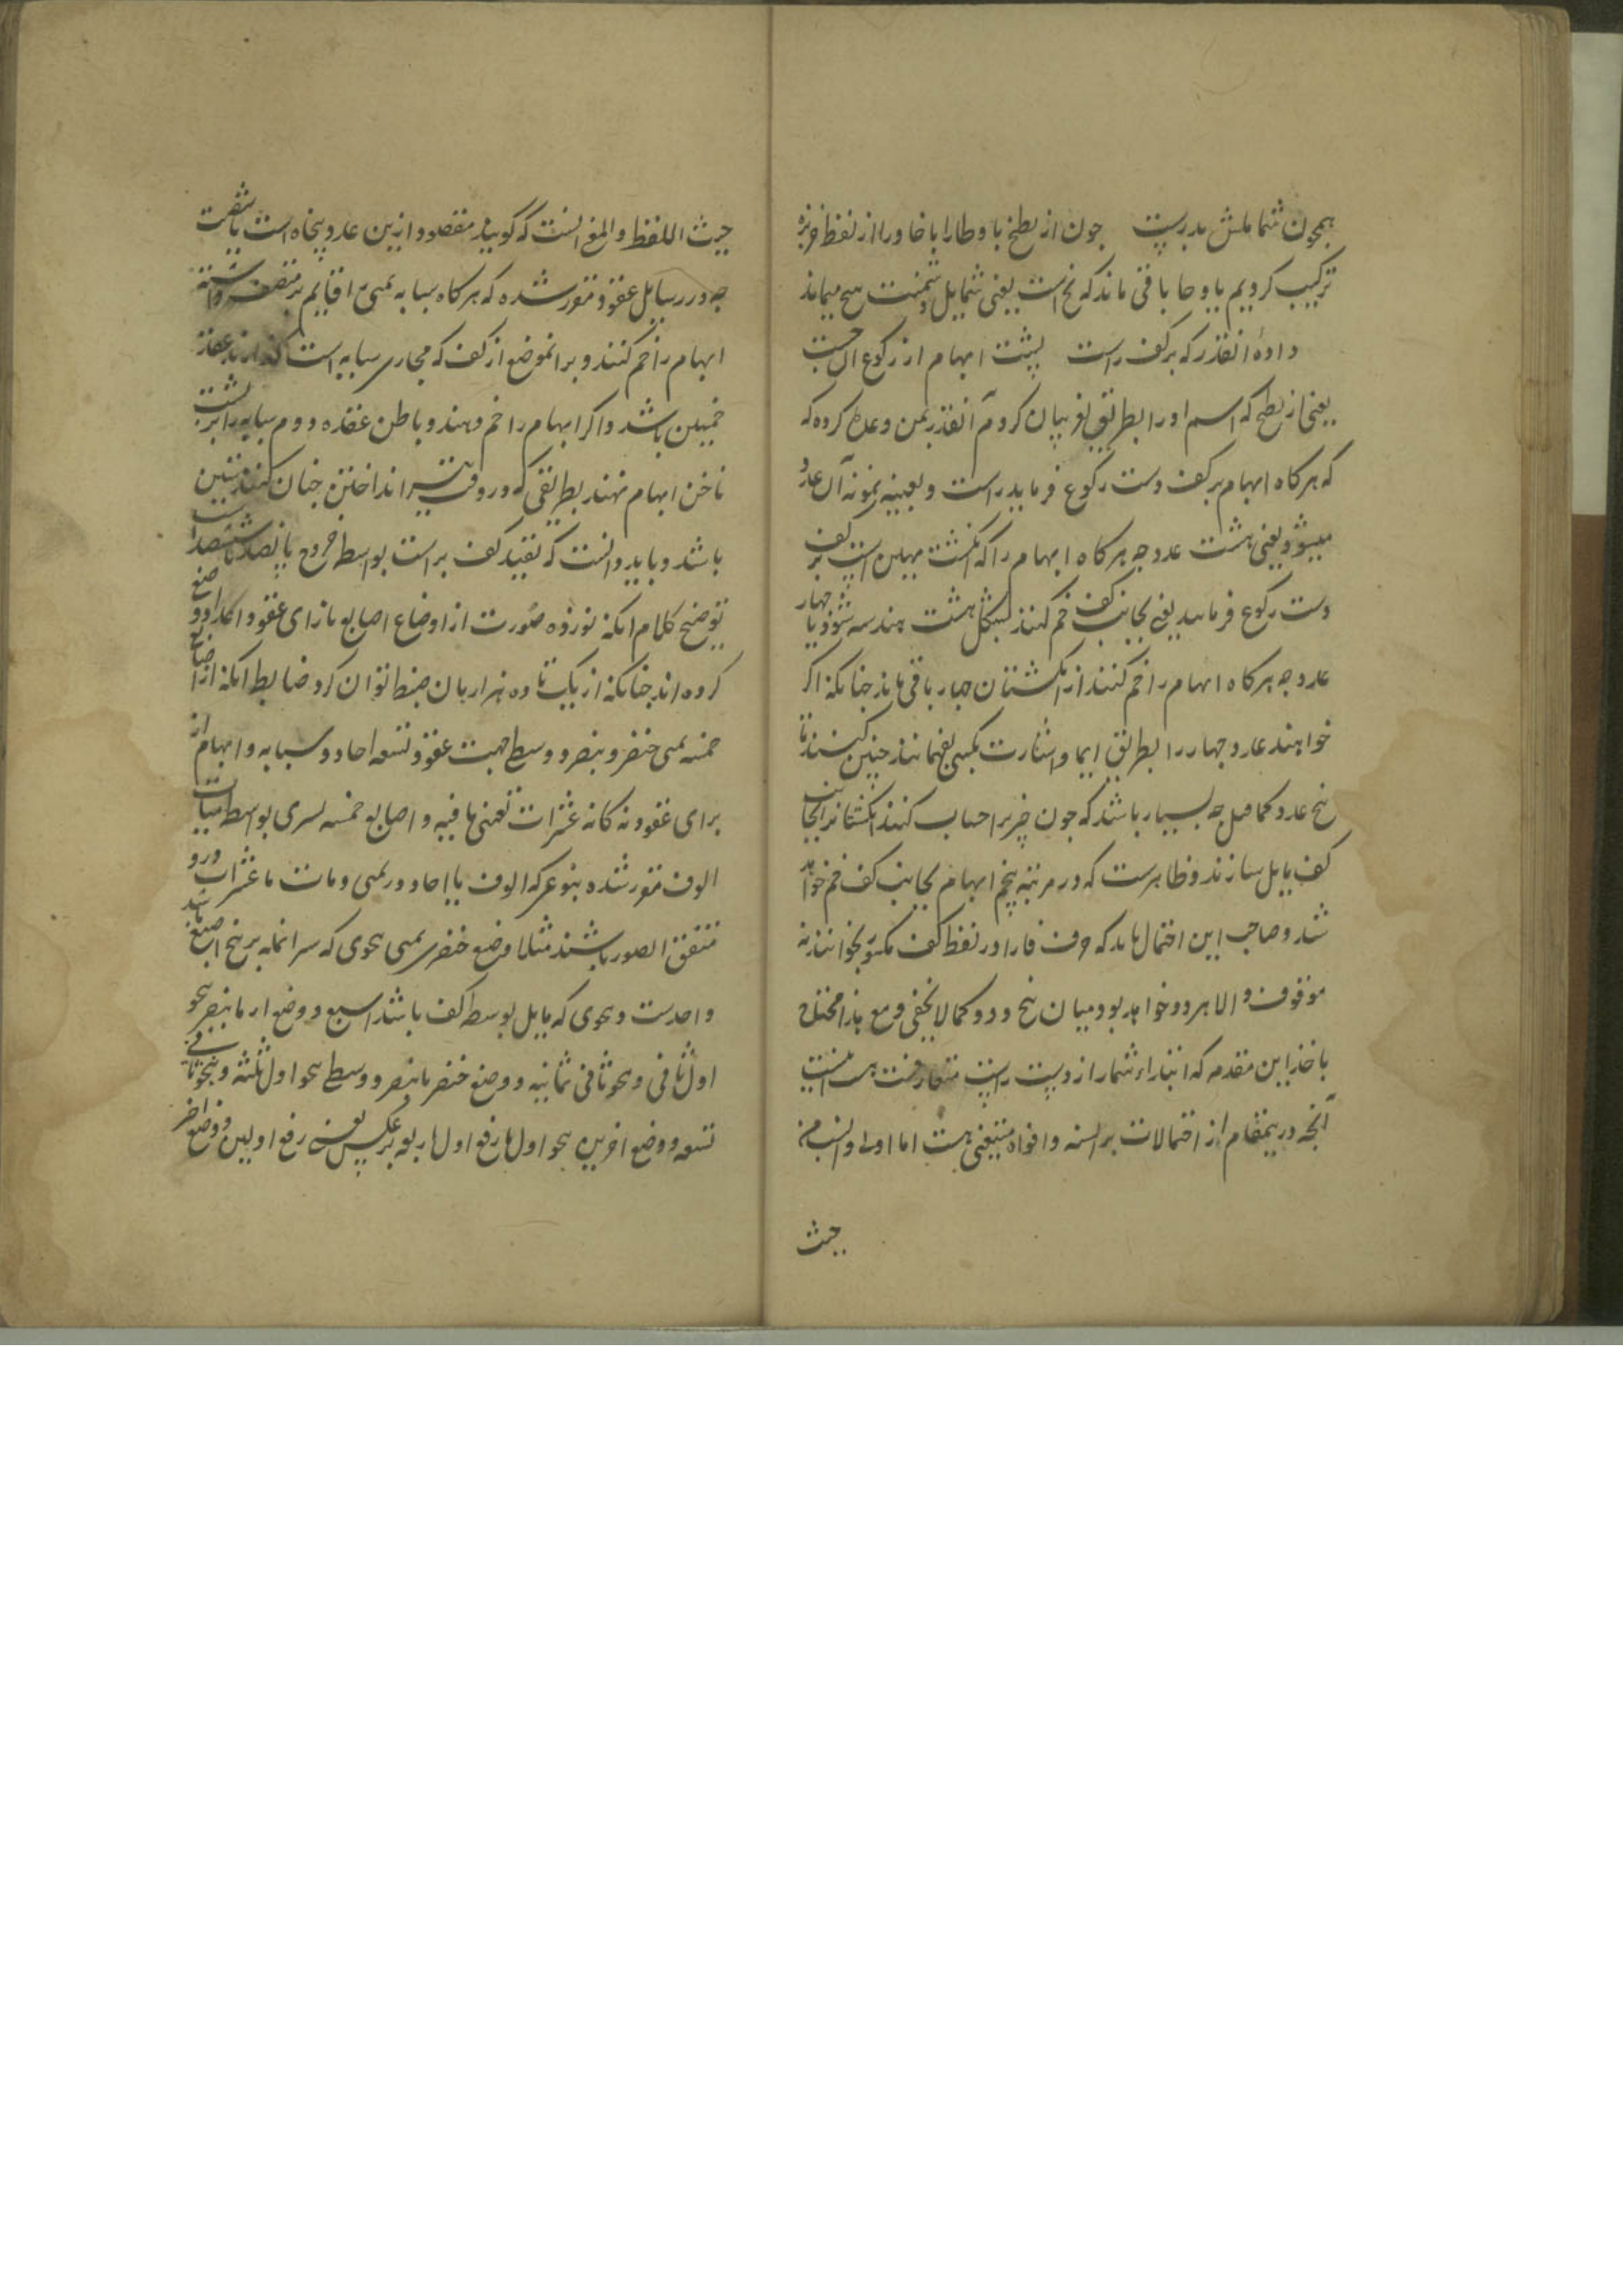 همچون شمایلش بدرست چون از بطیخ با و طا را با خا و را از لفظ خربزه
ترکیب کردیم یا و خا باقی ماند که یخ است یعنی شمایل
داده آنقدر که بر کف راست پشت ابهام از رکوع
یعنی از بطیخ که اسم او را بطریق لغز بیان کردم آنقدر بمن وعده کرده که
که هر کاه ابهام بر کف دست رکوع فرماید راست و بعینه نمونه آن عدد
میشود یعنی هشت عدد چه هر کاه ابهام را که انکشت مهین است بر کف
دست رکوع فرماید یعنی بجانب کف خم کنند بشکل هشت هندسه شود یا چهار
عدد چه هر کاه ابهام را خم کنند از انکشتان چهار باقی ماند چنانکه اکر
خواهند عدد چهار را بطریق ایما و اشارت بکسی بفهمانند چنین کنند تا
پنج عدد کما قیل چه بسیار باشد که چون چیزیرا حساب کنند انکشتانرا بجانب
کف مایل سازند و ظاهرست که در مرتبه پنجم ابهام بجانب کف خم خواهد
شد و صاحب این احتمال باید که حرف فا را در لفظ کف مکسور بخواند نه
موقوف و الا هر دو خواهد بود میان پنج و دو کما لا یخفی و مع هذا مختل
باخذ این مقدمه که ابتداء شمار از دست راست متعارفست
آنچه در ینمقام از احتمالات بر السنه و افواه هست اما اولی و انسب من
حیث
حیث اللفظ والمعنی آنست که کویند مقصود ازین عدد پنجاه است یا شصت
چه در رسایل عقود مقرر شده که هر کاه سبابه یمنی را قایم و منتصب داشته
ابهام را خم کنند و بر انموضع از کف که محاذی سبابه است کذارند عقد
خمسین باشد و اکر ابهام را خم دهند و باطن عقده دوم سبابه را بر پشت
ناخن ابهام نهند بطریقی که در وقت تیر انداختن چنان کنند ستین
باشد و باید دانست که تقیید کف براست بواسطه خروج پانصد یا ششصد است
توضیح کلام آنکه نوزده صورت از اوضاع اصابع بازای عقود اعداد وضع
کرده اند چنانکه از یک تا ده هزار بان ضبط توان کرد ضابطه آنکه از اصابع
خمسه یمنی خنصر و بنصر و وسطی جهت عقود تسعه احاد و سبابه و ابهام از
برای عقود نه کانه عشرات تعین یافته و اصابع خمسه یسری بواسطه مئات
الوف مقرر شده بنوعی که الوف با احاد در یمنی و مئات با عشرات درو
متفق الصور باشند مثلا وضع خنصر یمنی بنحوی که سر انمله بر بیخ اصبع باشد
واحدست و بنحوی که مایل بوسط کف باشد سبع و وضع او با بنصر بنحو
اول ثانی و بنحو ثانی ثمانیه و وضع خنصر با بنصر و وسطی بنحو اول ثلثه و بنحو ثانی
تسعه و وضع اخرین بنحو اول با رفع اول اربعه و بر عکس یعنی رفع اولین و وضع اخر